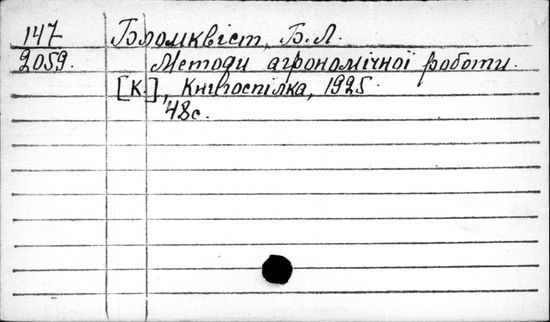 147 Бломквіст, Б. Л.
2059. Методи агрономічної роботи.
[К.], Книгоспілка, 1925.
48с.